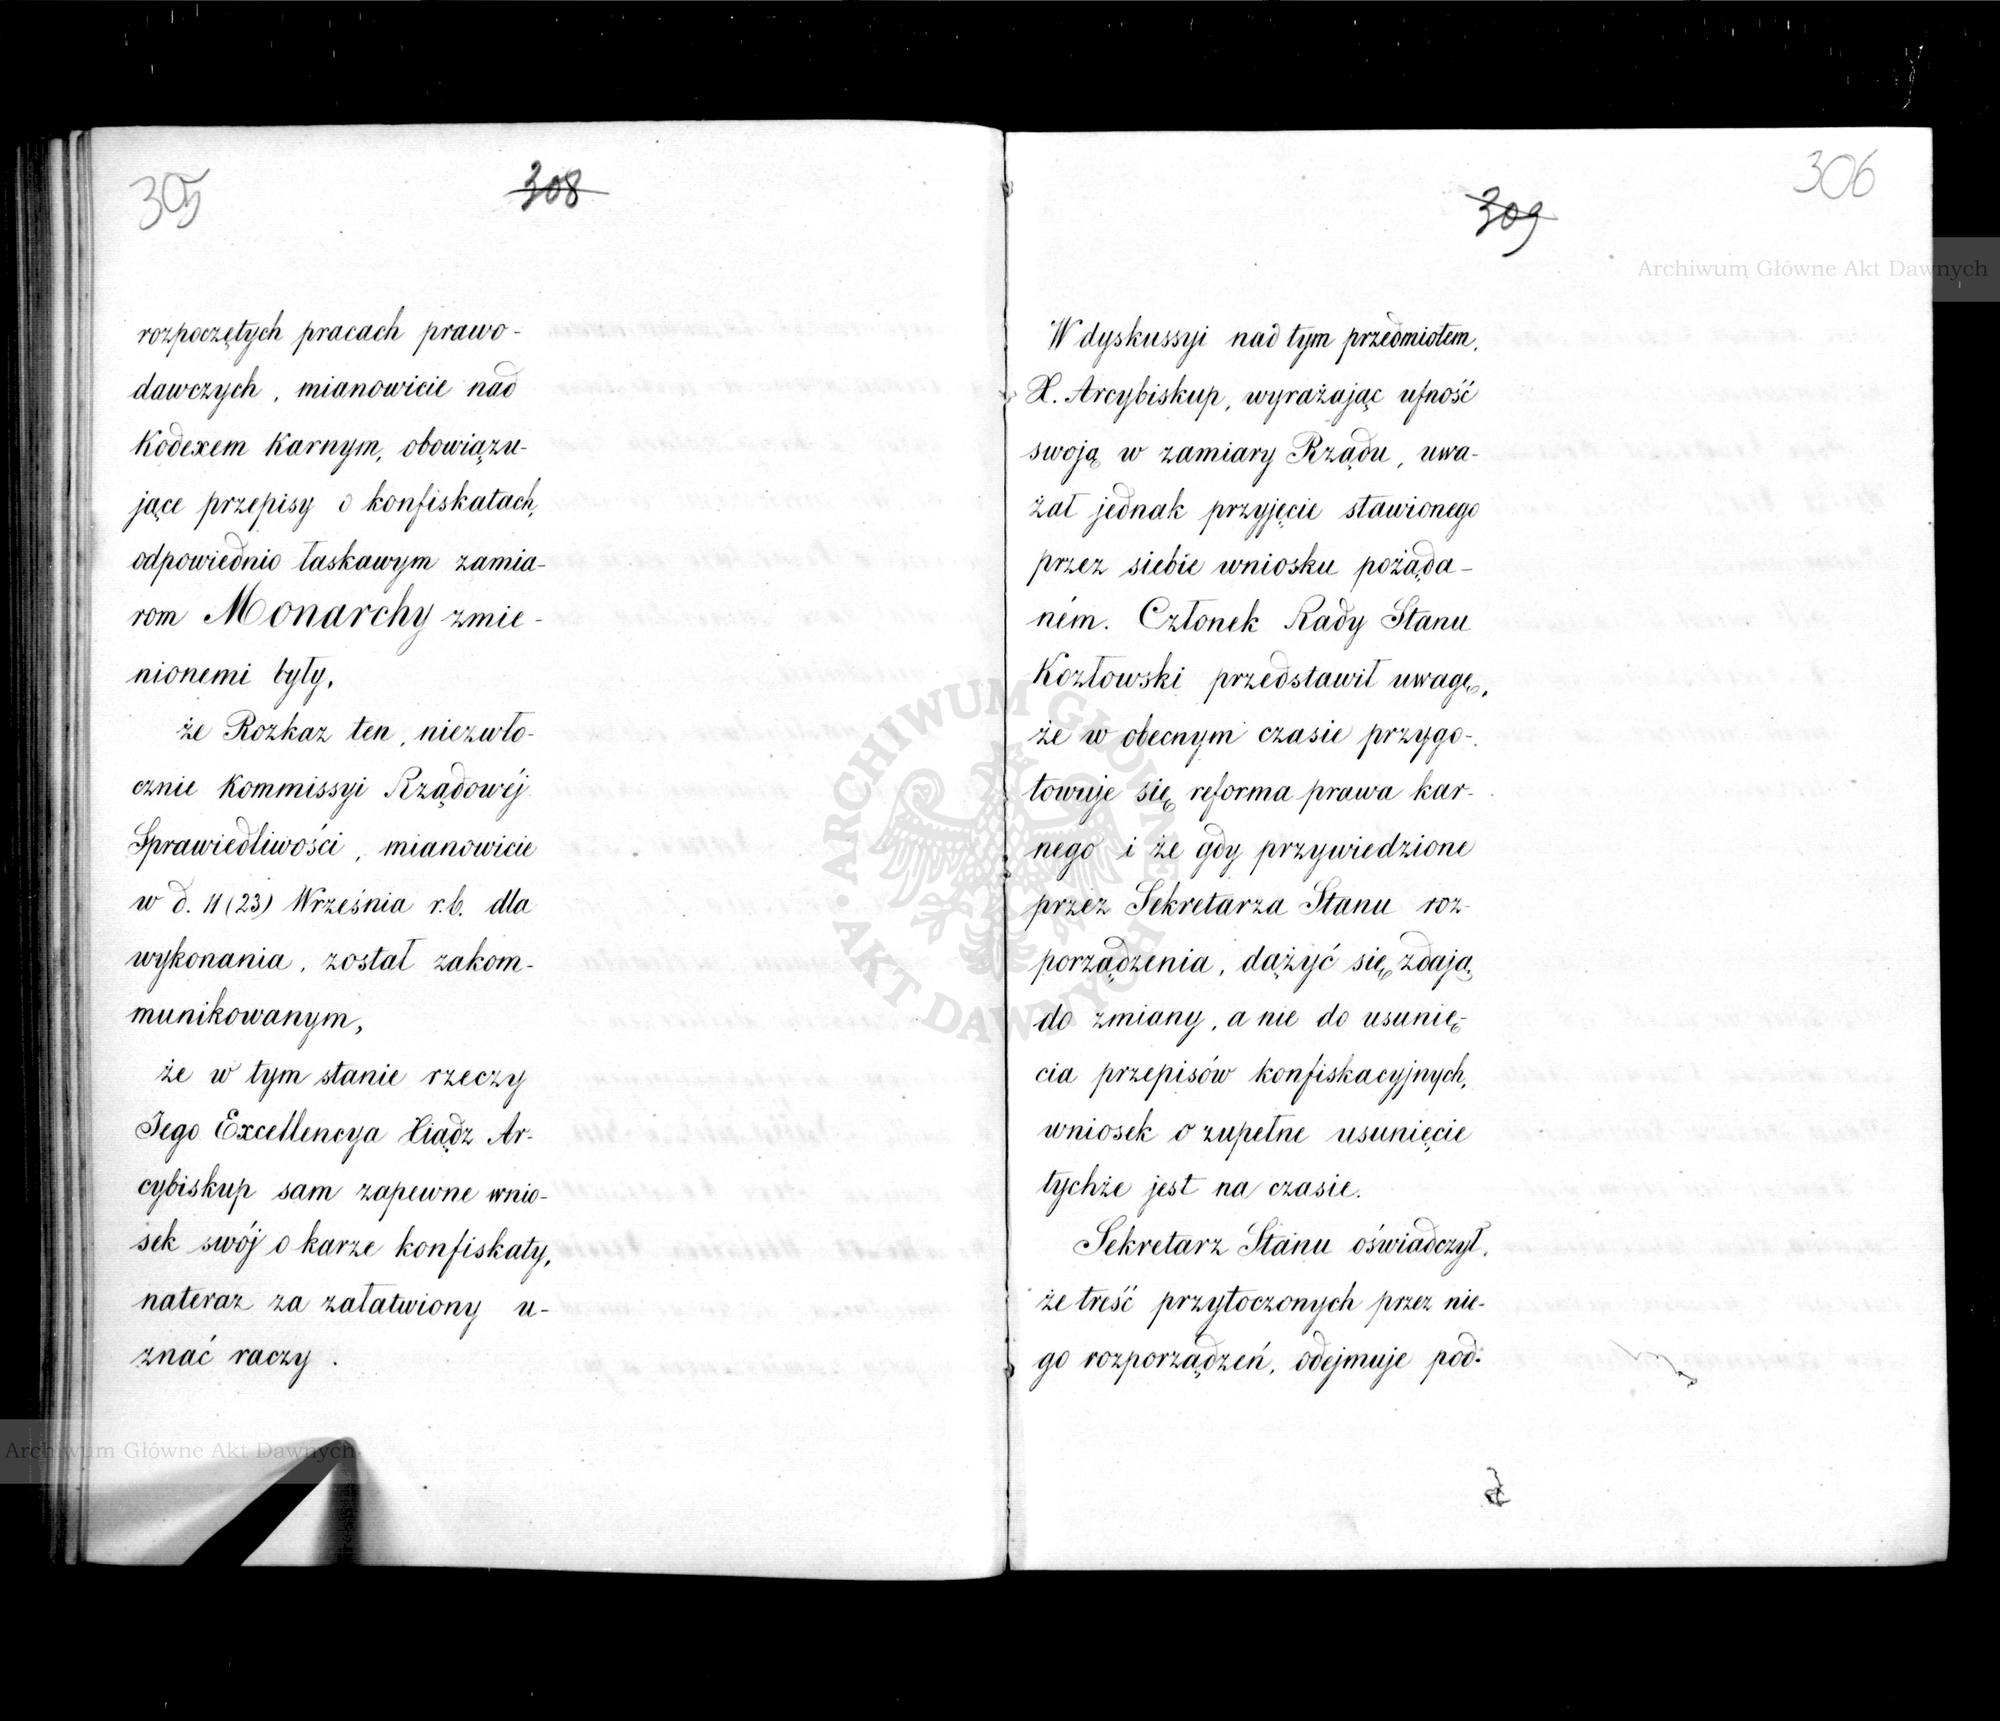 305
308
rozpoczętych pracach prawo-
dawczych, mianowicie nad
Kodexem Karnym, obowiązu-
jące przepisy o konfiskatach,
odpowiednio łaskawym zamia-
rom Monarchy zmie-
nionemi były,
że Rozkaz ten, niezwło-
cznie Kommissyi Rządowéj
Sprawiedliwości, mianowicie
w d. 11 (23) Września r.b. dla
wykonania, został zakom-
munikowanym,
że w tym stanie rzeczy
Jego Excellencya Xiądz Ar-
cybiskup sam zapewne wnio-
sek swój o karze konfiskaty,
nateraz za załatwiony u-
znać raczy.
Archiwum Główne Akt Dawnych
306
309
Archiwum Główne Akt Dawnych
W dyskussyi nad tym przedmiotem,
X. Arcybiskup, wyrażając ufność
swoją w zamiary Rządu, uwa-
żał jednak przyjęcie stawionego
przez siebie wniosku pożąda-
ném. Członek Rady Stanu
Kozłowski przedstawił uwagę,
że w obecnym czasie przygo-
towuje się reforma prawa kar-
nego i że gdy przywiedzione
przez Sekretarza Stanu roz-
porządzenia, dążyć się zdają
do zmiany, a nie do usunię-
cia przepisów konfiskacyjnych,
wniosek o zupełne usunięcie
tychże jest na czasie.
Sekretarz Stanu oświadczył,
że treść przytoczonych przez nie-
go rozporządzeń, odejmuje pod-
ARCHIWUM GŁÓWNE AKT DAWNYCH